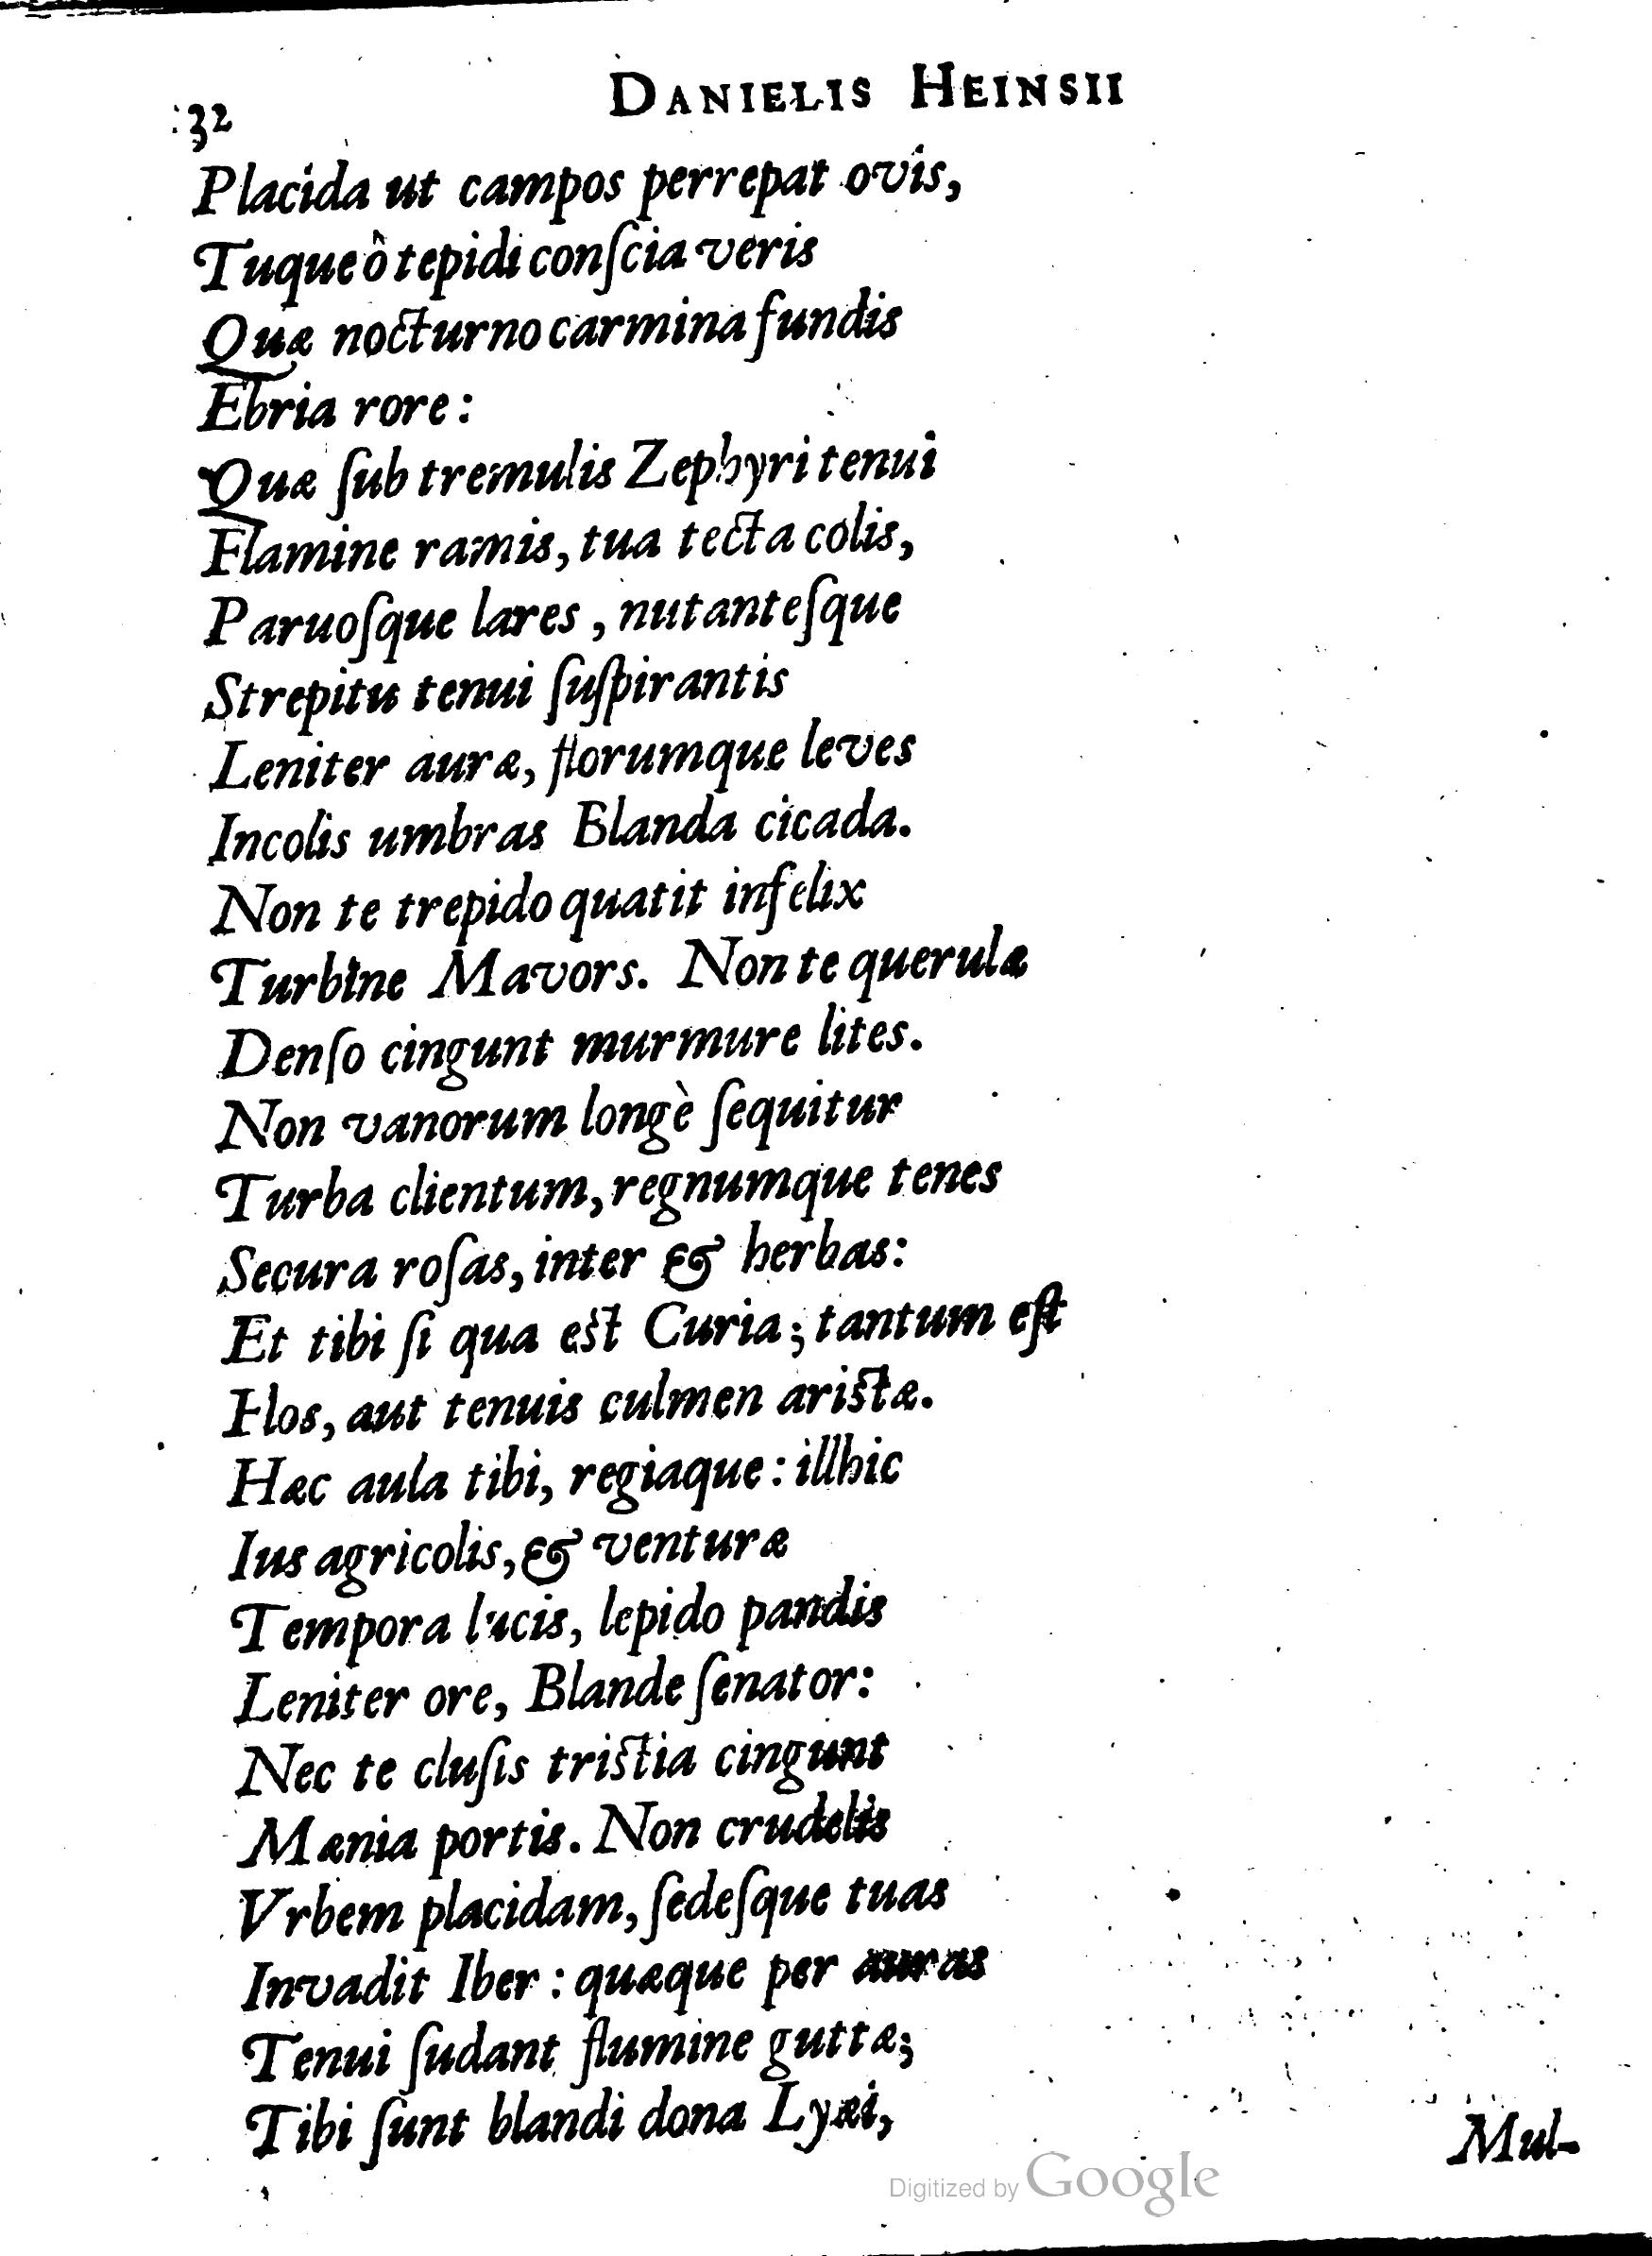 32 DANIELIS HEINSII
Placida ut campos perrepat ovis,
Tuque ô tepidi conſcia veris
Quæ nocturno carmina fundis
Ebria rore:
Quæ ſub tremulis Zephyri tenui
Flamine ramis, tua tecta colis,
Paruoſque lares, nutanteſque
Strepitu tenui ſuſpirantis
Leniter auræ, florumque leves
Incolis umbras Blanda cicada.
Non te trepido quatit infelix
Turbine Mavors. Non te querulæ
Denſo cingunt murmure lites.
Non vanorum longè ſequitur
Turba clientum, regnumque tenes
Secura roſas, inter & herbas:
Et tibi ſi qua est Curia; tantum eſt
Flos, aut tenuis culmen aristæ.
Hæc aula tibi, regiaque: illhic
Ius agricolis, & venturæ
Tempora lucis, lepido pandis
Leniter ore, Blande ſenator:
Nec te cluſis tristia cingunt
Mænia portis. Non crudelis
Vrbem placidam, ſedeſque tuas
Invadit Iber: quæque per auras
Tenui ſudant flumine guttæ;
Tibi ſunt blandi dona Lyæi,
Mul-
Digitized by Google